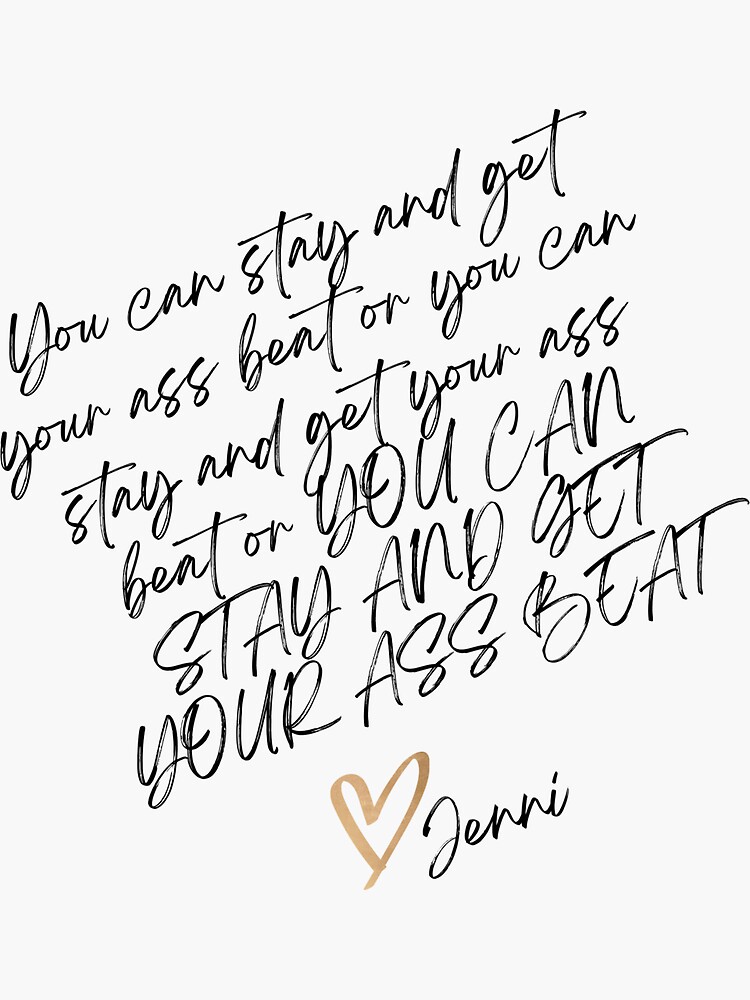 You can stay and get
your ass beat or you can
stay and get your ass
beat or YOU CAN
STAY AND GET
YOUR ASS BEAT
Jenni